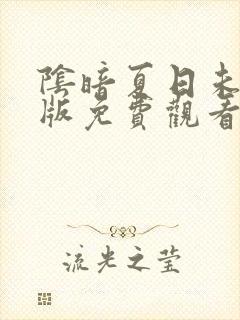 陰暗夏日未
版免費觀看
流光之莹